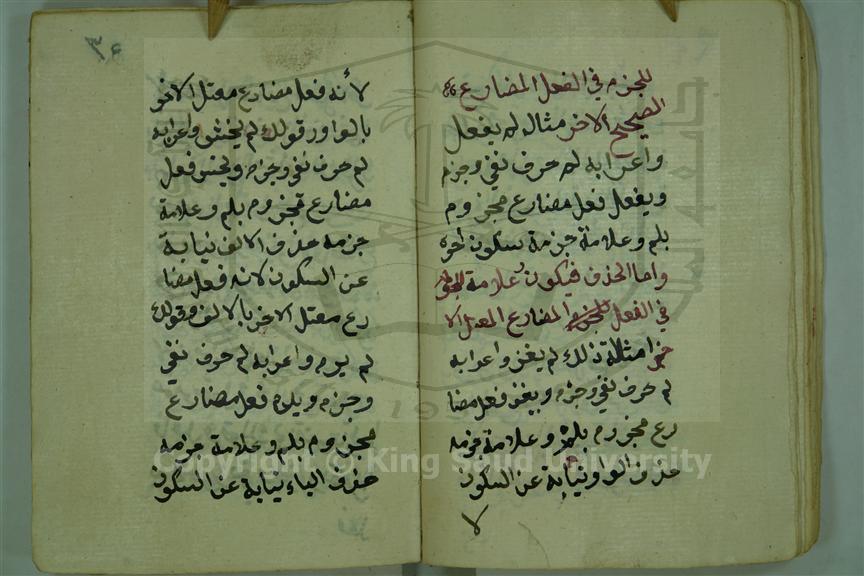 للجزم في الفعل المضارع
الصحيح الاخر مثال لم يفعل
واعرابه لم حرف نفي وجزم
ويفعل فعل مضارع مجزوم
بلم وعلامة جزمه سكون اخره
واما الحذف فيكون علامة للجزم
في الفعل المضارع المعتل الا
خر امثلة ذلك لم يغز واعرابه
لم حرف نفي وجزم ويغز فعل مضا
رع مجزوم بلم وعلامة جزمه
حذف الواو نيابة عن السكون
لا
٣٤
لانه فعل مضارع معتل الاخر
بالواو وقولك لم يخش واعرابه
لم حرف نفي وجزم ويخش فعل
مضارع مجزوم بلم وعلامة
جزمه حذف الالف نيابة
عن السكون لانه فعل مضا
رع معتل الاخر بالالف وقولك
لم يرم واعرابه لم حرف نفي
وجزم ويرم فعل مضارع
مجزوم بلم وعلامة جزمه
حذف الياء نيابة عن السكون
Copyright © King Saud University